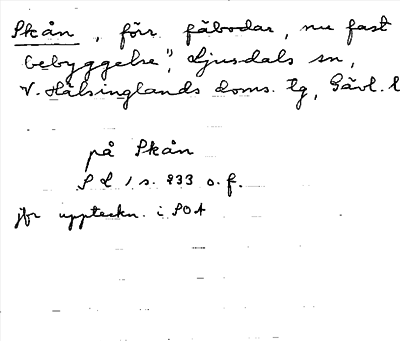 Skån, förr fäbodar, nu fast
bebyggelse", Ljusdals sn,
V. Hälsinglands doms. tg, Gävl. l
på Skån
S L 1 s. 233 o.f.
jfr uppteckn. i SOA